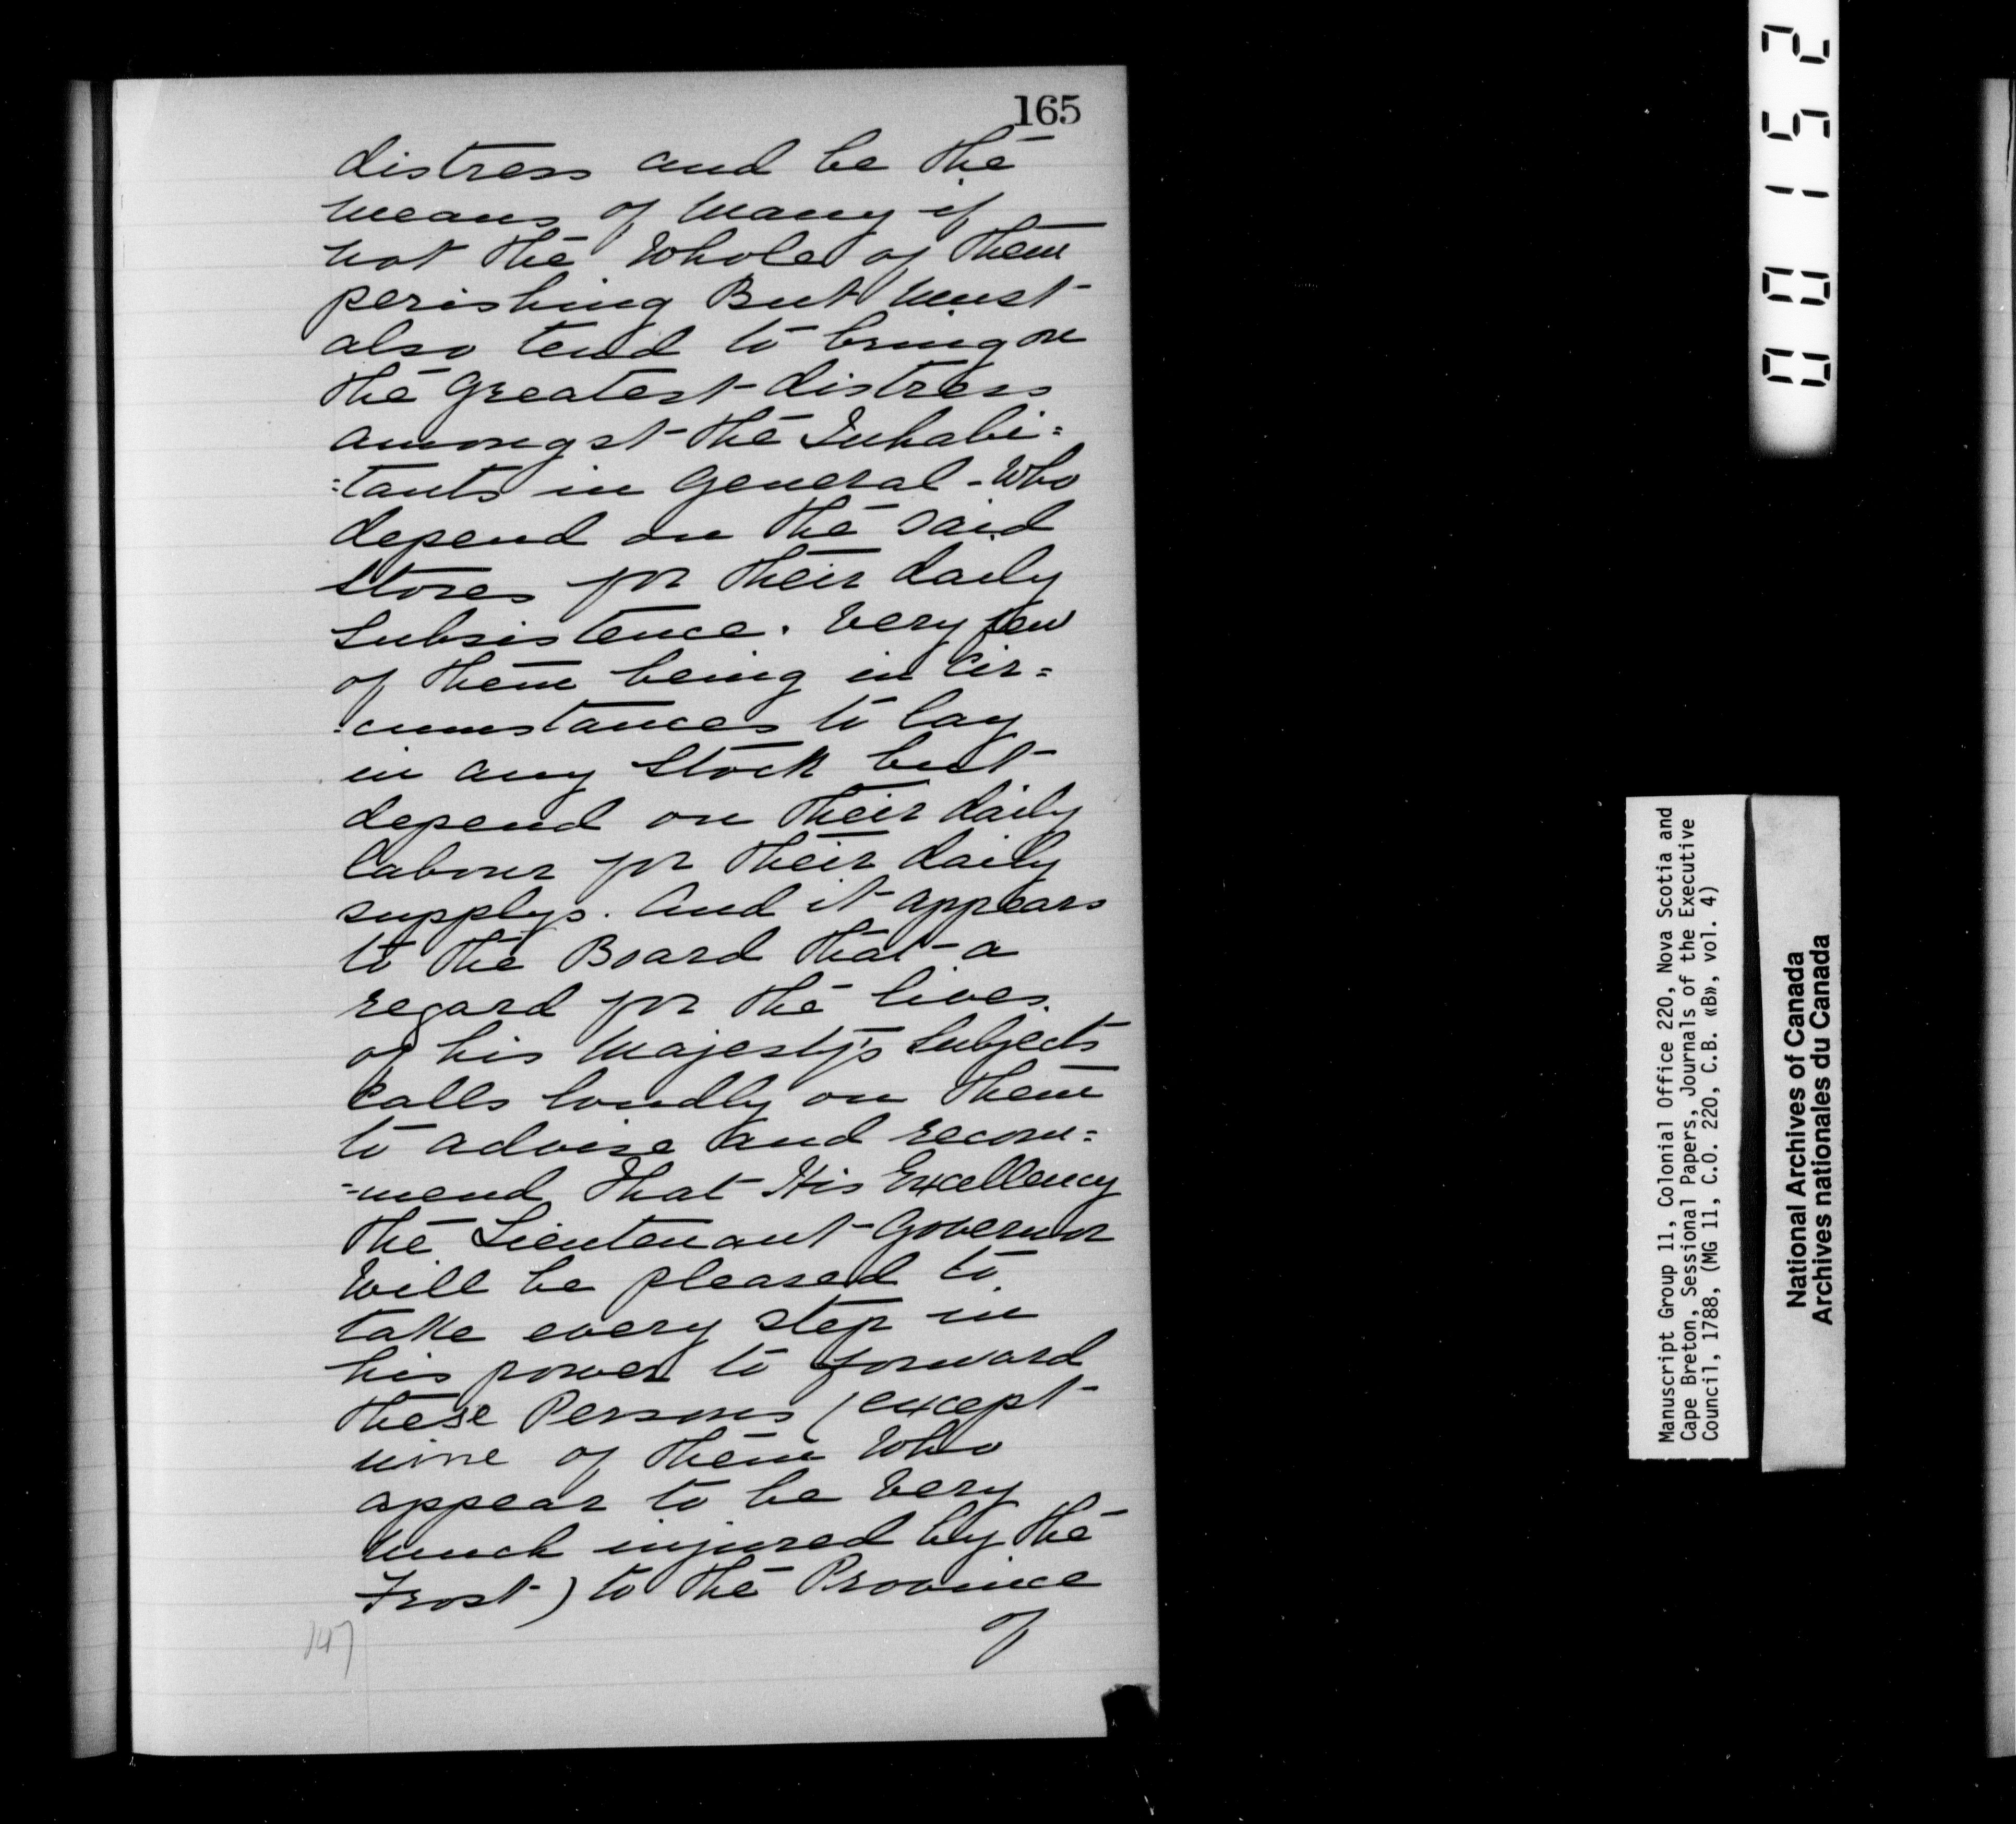 165
distress and be the
means of many if
not the Whole of them
perishing But must
also tend to bring on
the Greatest distress
amongst the Inhabi=
=tants in General - Who
depend on the said
Stores for their daily
Subsistence. Very few
of them being in Cir=
=cumstances to lay
in any Stock but
depend on their daily
labour for their daily
supplys. And it appears
to the Board that a
regard for the lives
of his Majesty's Subjects
Calls loudly on them
to advise and recom=
=mend that His Excellency
the Lieutenant Governor
Will be pleased to
take every step in
his power to forward
these Persons (except
nine of them Who
appear to be Very
much injured by the
Frost) to the Province
of
147
00152
Manuscript Group 11, Colonial Office 220, Nova Scotia and
Cape Breton, Sessional Papers, Journals of the Executive
Council, 1788, (MG 11, C.O. 220, C.B. «B», vol. 4)
National Archives of Canada
Archives nationales du Canada